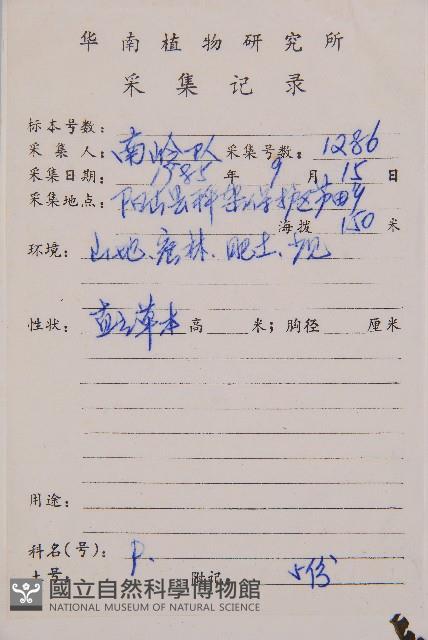 华南植物研究所
采集记录
标本号数:
采集人: 南岭队 采集号数: 1286
采集日期: 1985 年 9 月 15 日
采集地点: 阳山县秤架
海拨 150 米
环境: 山地、密林、肥土、少见
性状: 直立草本 高 米; 胸径 厘米
用途:
科名(号): P.
土名: 附记: 5份
國立自然科學博物館
NATIONAL MUSEUM OF NATURAL SCIENCE